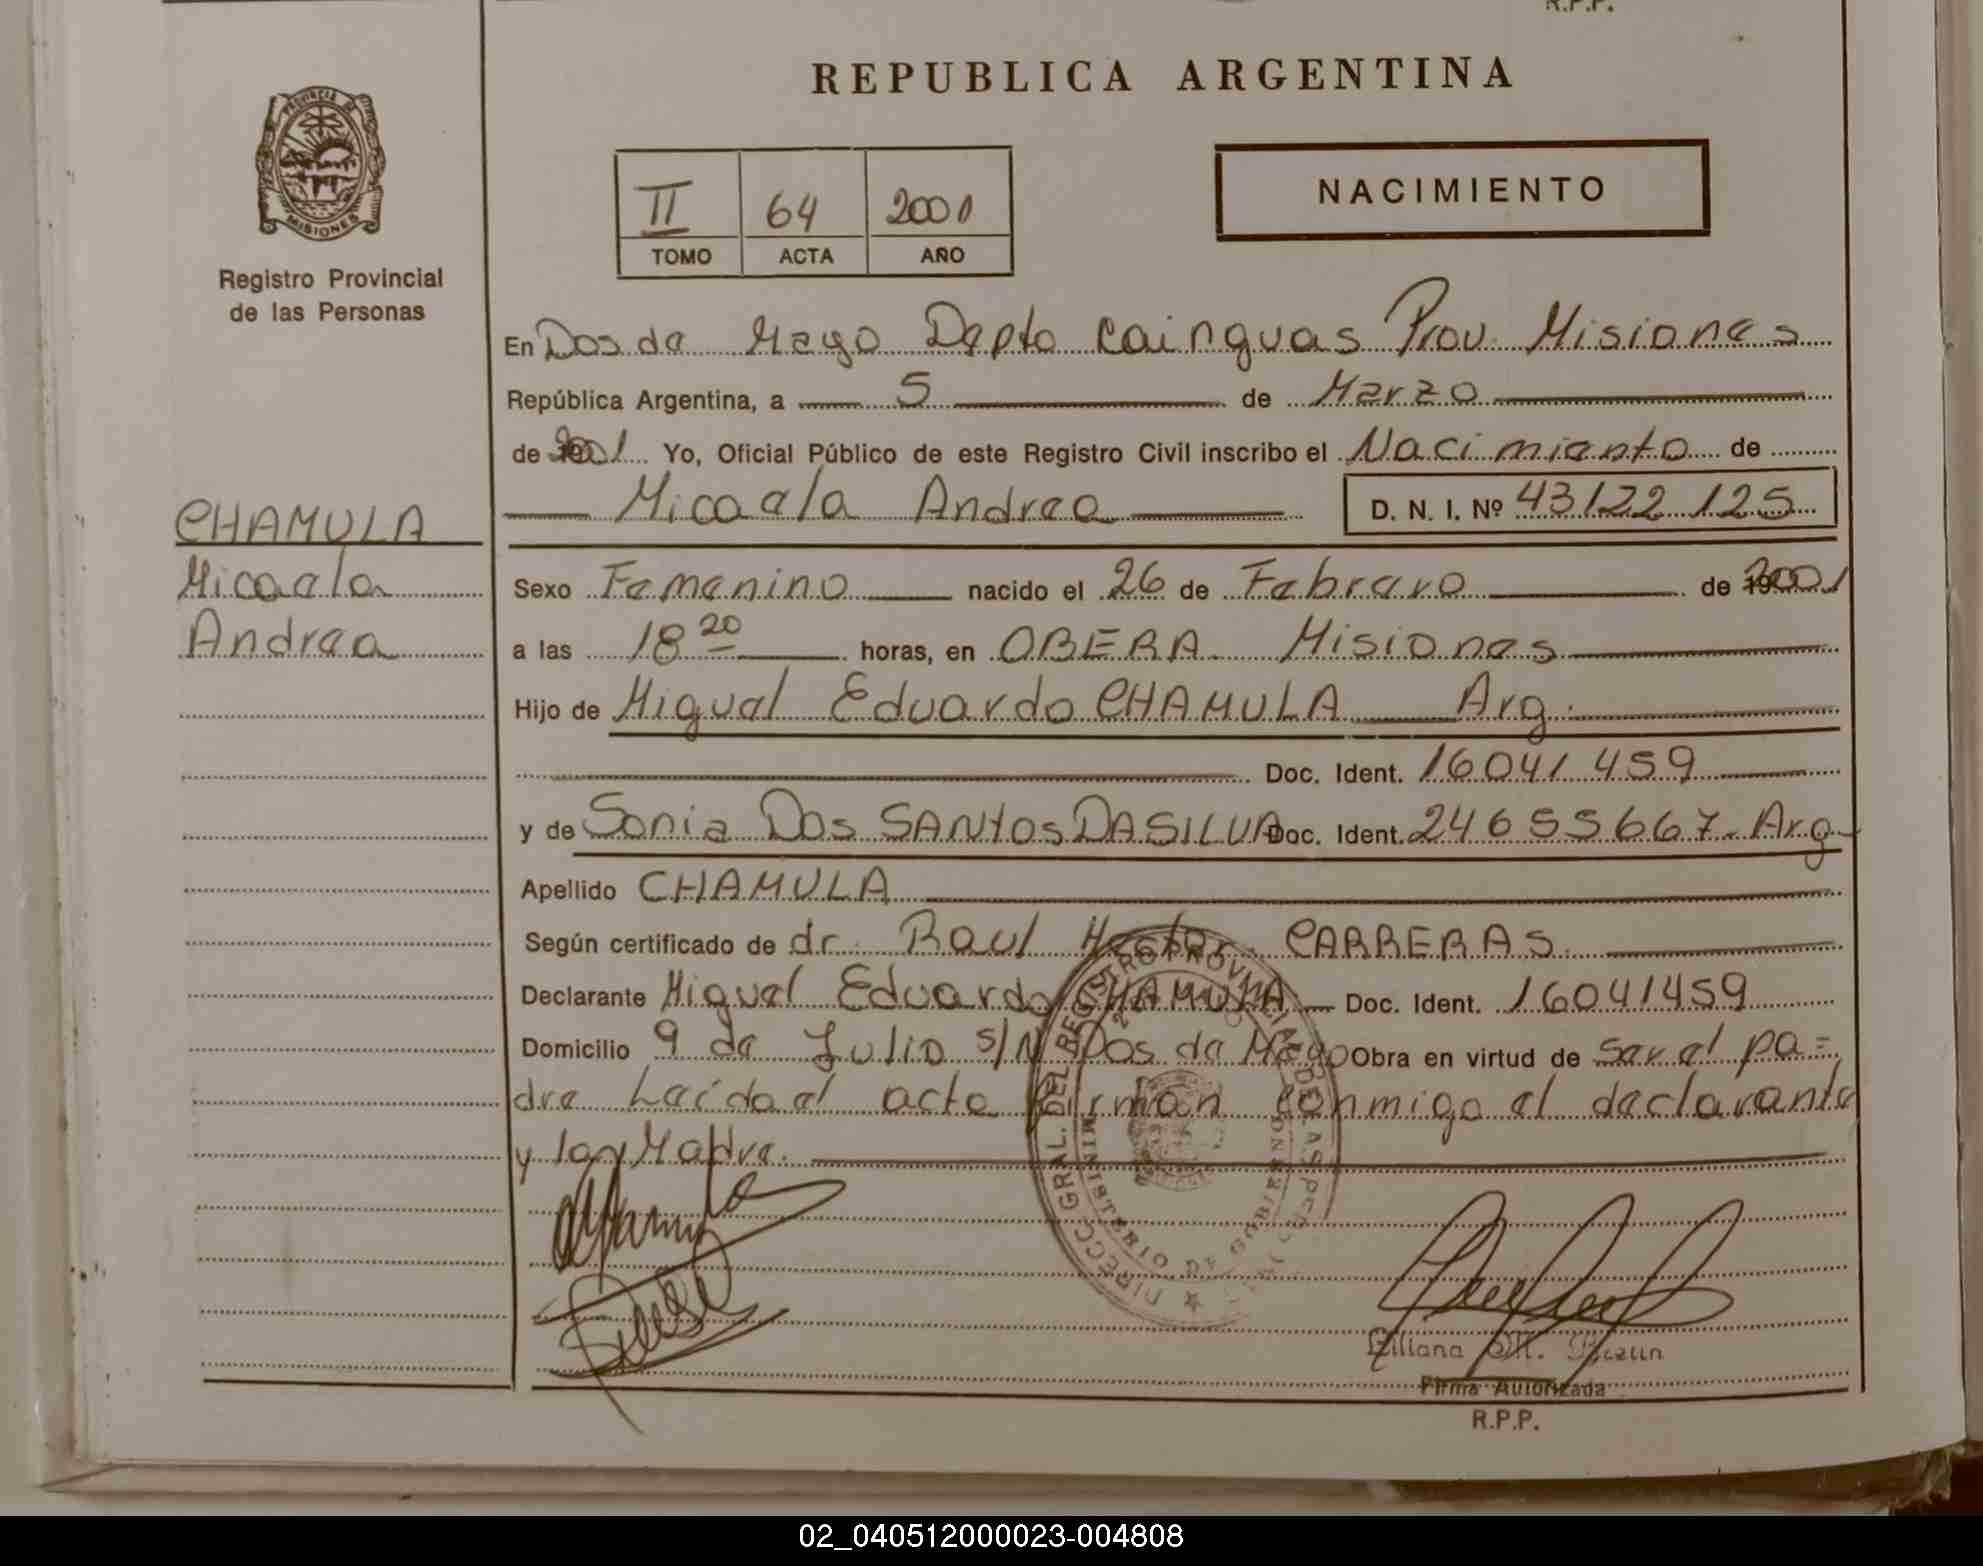 R.P.P.
REPUBLICA ARGENTINA
PROVINCIA DE
MISIONES
Registro Provincial
de las Personas
II 64 2001
TOMO ACTA AÑO
NACIMIENTO
En Dos de Mayo Depto Cainguas Prov. Misiones
República Argentina, a 5 de Marzo
de 2001 Yo, Oficial Público de este Registro Civil inscribo el Nacimiento de
Micaela Andrea D. N. I. Nº 43122125
CHAMULA
Micaela
Andrea
Sexo Femenino nacido el 26 de Febrero de 2001
a las 18 20 horas, en OBERA Misiones
Hijo de Miguel Eduardo CHAMULA Arg.
Doc. Ident. 16041459
y de Sonia DOS SANTOS DASILVA Doc. Ident. 24655667- Arg
Apellido CHAMULA
Según certificado de dr. Raul Hector CARRERAS
Declarante Miguel Eduardo CHAMULA Doc. Ident. 16041459
Domicilio 9 de Julio S/N Dos de Mayo Obra en virtud de ser el pa=
dre Leído el acta Firman conmigo el declarante
y la Madre.
DIRECC GRAL. DEL REGISTRO PROVINCIAL DE LAS PERSONAS
MINISTERIO DE GOBIERNO
Liliana M. Braun
Firma Autorizada
R.P.P.
02_040512000023-004808